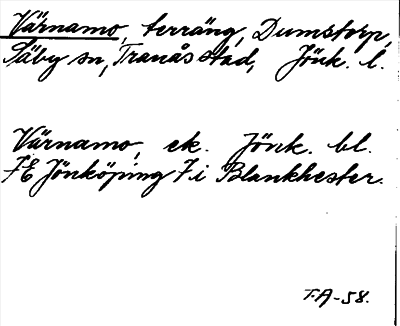 Värnamo, terräng, Dumstorp,
Säby sn, Tranås stad, Jönk. l.
Värnamo, ek. Jönk. bl.
7E Jönköping 7i Blankhester.
T.A-58.